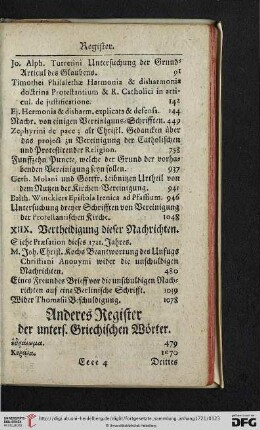 Register.
Jo. Alph. Turretini Untersuchung der Grund-
Articul des Glaubens. 91
Timothei Philalethæ Harmonia & disharmonia
doctrina Protestantium & R. Catholici in arti-
cul. de justificatione. 142
Ej. Hermonia & disharm. explicata & defensa. 144
Nachr. von einigen Vereinigungs-Schrifften. 449
Zephyrini de pace; alt Christl. Gedancken über
das project zu Vereinigung der Catholischen
und Protestirenden Religion. 758
Funffzehn Puncte, welche der Grund der vorha-
benden Vereinigung seyn sollen. 937
Gerh. Molani und Gottfr. Leibnitzen Urtheil von
dem Nutzen der Kirchen-Vereinigung. 941
Balth. Winckleri Epistola irenica ad Pfaffium. 946
Untersuchung dreyer Schrifften von Vereinigung
der Protestantischen Kirche. 1048
XIIX. Vertheidigung dieser Nachrichten.
Siehe Præfation dieses 1721. Jahres.
M. Joh. Christ. Kochs Beantwortung des Unfugs
Christiani Anonymi wider die unschuldigen
Nachrichten. 480
Eines Freundes Brieff vor die unschuldigen Nach-
richten auf eine Berlinische Schrifft. 1019
Wider Thomasii Beschuldigung. 1078
Anderes Register
der unters. Griechischen Wörter.
479
1070
Eeee 4 Drittes
UNIVERSITÄTS-
BIBLIOTHEK
HEIDELBERG
© Universitätsbibliothek Heidelberg